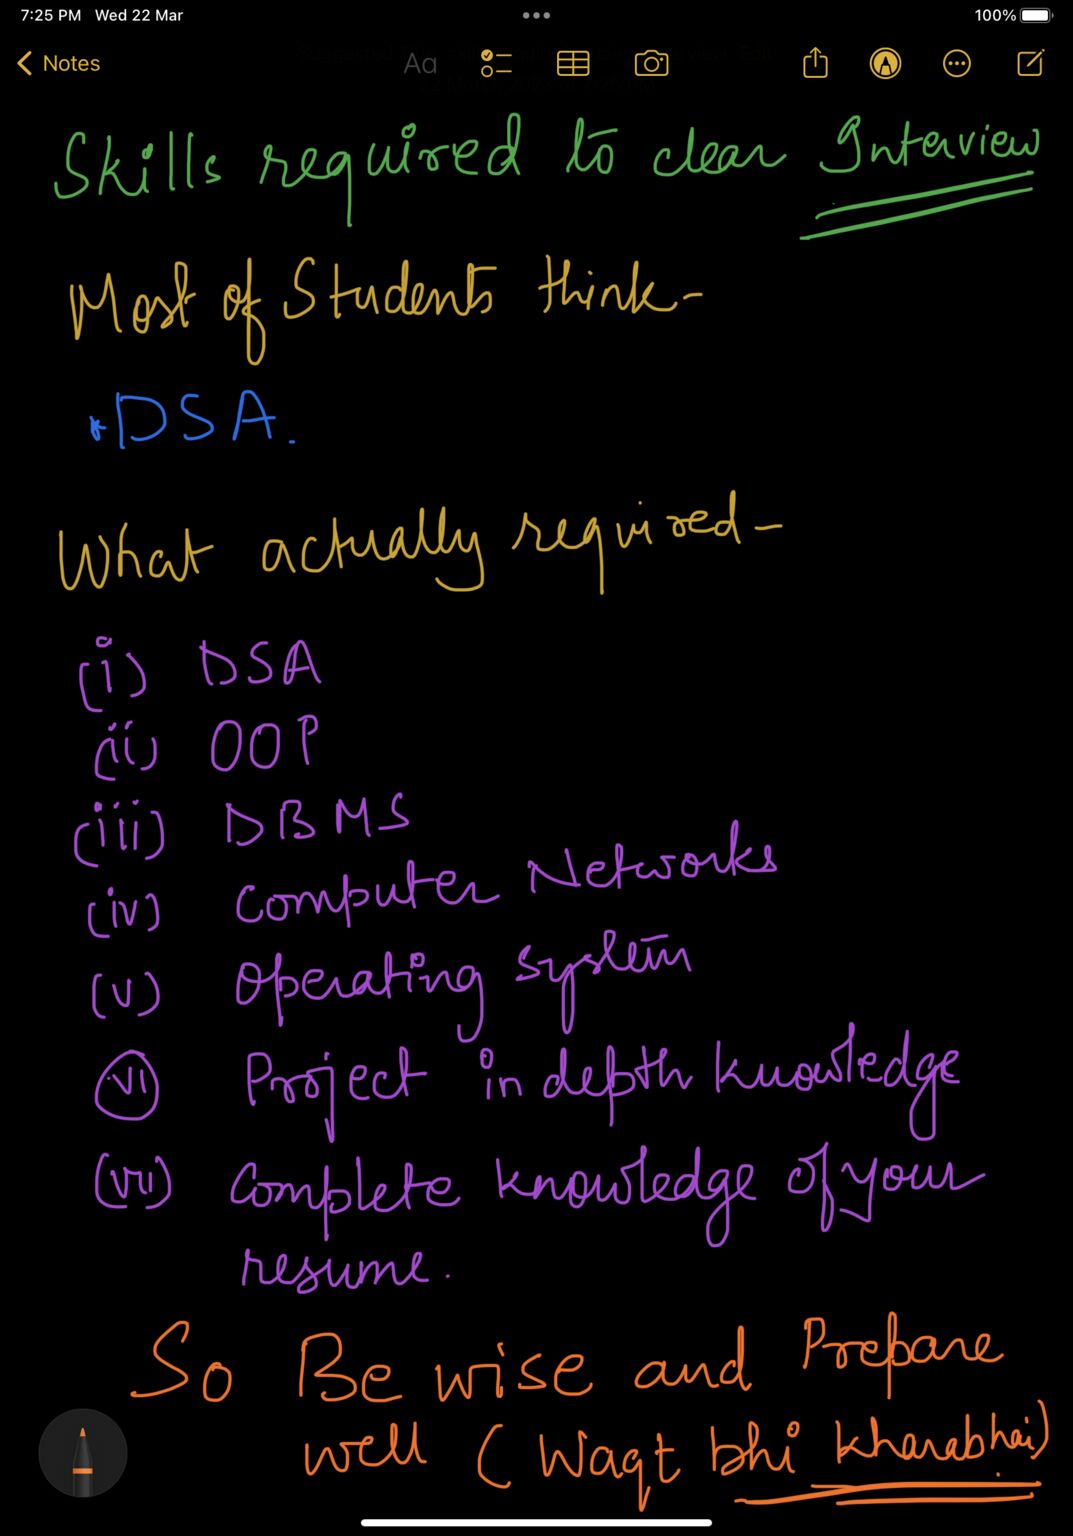 7:25 PM Wed 22 Mar 100%
Notes Aa
Skills required to clear Interview
Most of Students think-
*DSA.
What actually required-
(i) DSA
(ii) OOP
(iii) DBMS
(iv) Computer Networks
(v) Operating system
(vi) Project in depth knowledge
(vii) Complete knowledge of your
resume.
So Be wise and Prepare
well (Waqt bhi kharabhai)